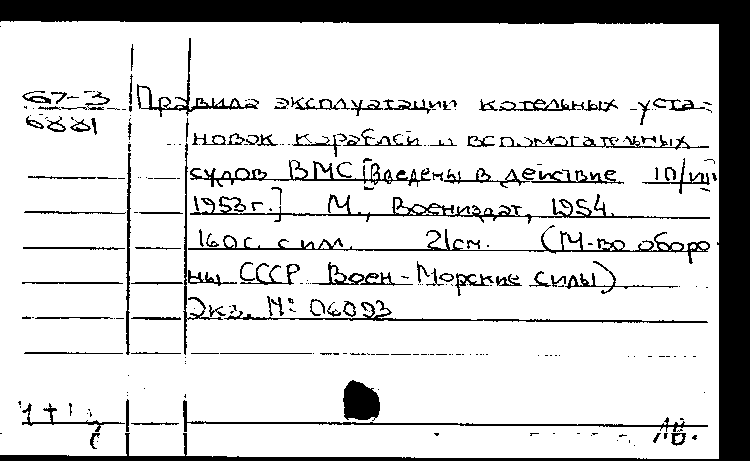 67-3 Правила эксплуатации котельных уста-
6881 новок кораблей и вспомогательных
судов ВМС [Введены в действие 10/VIII
1953г.] М., Воениздат, 1954.
160с. с илл. 21см. (М-во оборо
ны СССР Воен-Морские силы)
Экз. №: 06093